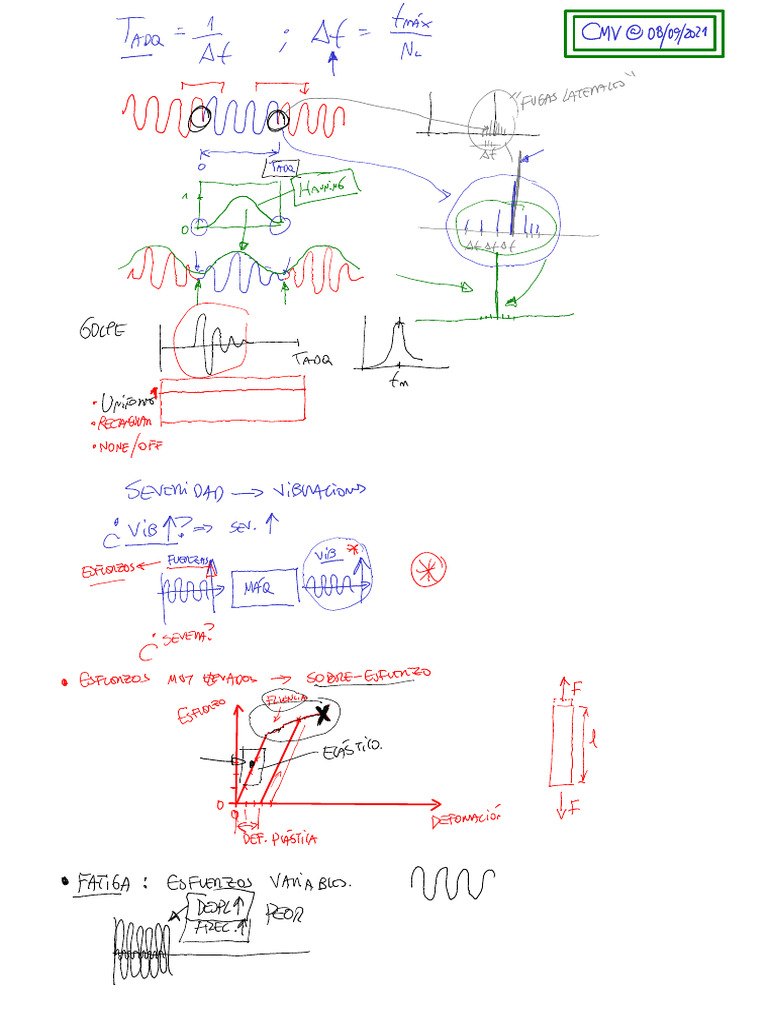 CMV @ 08/09/2021
TADQ = 1 / Δf ; Δf = fMÁX / NL
"FUGAS LATERALES"
Δf
0
TADQ
HANNING
1
0
Δf Δf Δf
GOLPE
TADQ
fn
• UNIFORME
• RECTAGULAR
• NONE/OFF
SEVERIDAD → VIBRACIONES
¿VIB ↑? ⇒ SEV. ↑
ESFUERZOS ← FUERZAS
MÁQ
VIB *
*
¿SEVERA?
• ESFUERZOS MUY ELEVADOS → SOBRE-ESFUERZO
ESFUERZO
FLUENCIA
F
ELÁSTICO.
l
0
0
F
DEFOMACIÓN
DEF. PLÁSTICA
• FATIGA : ESFUERZOS VARIABLES.
DESPL ↑
FREC. ↑
PEOR